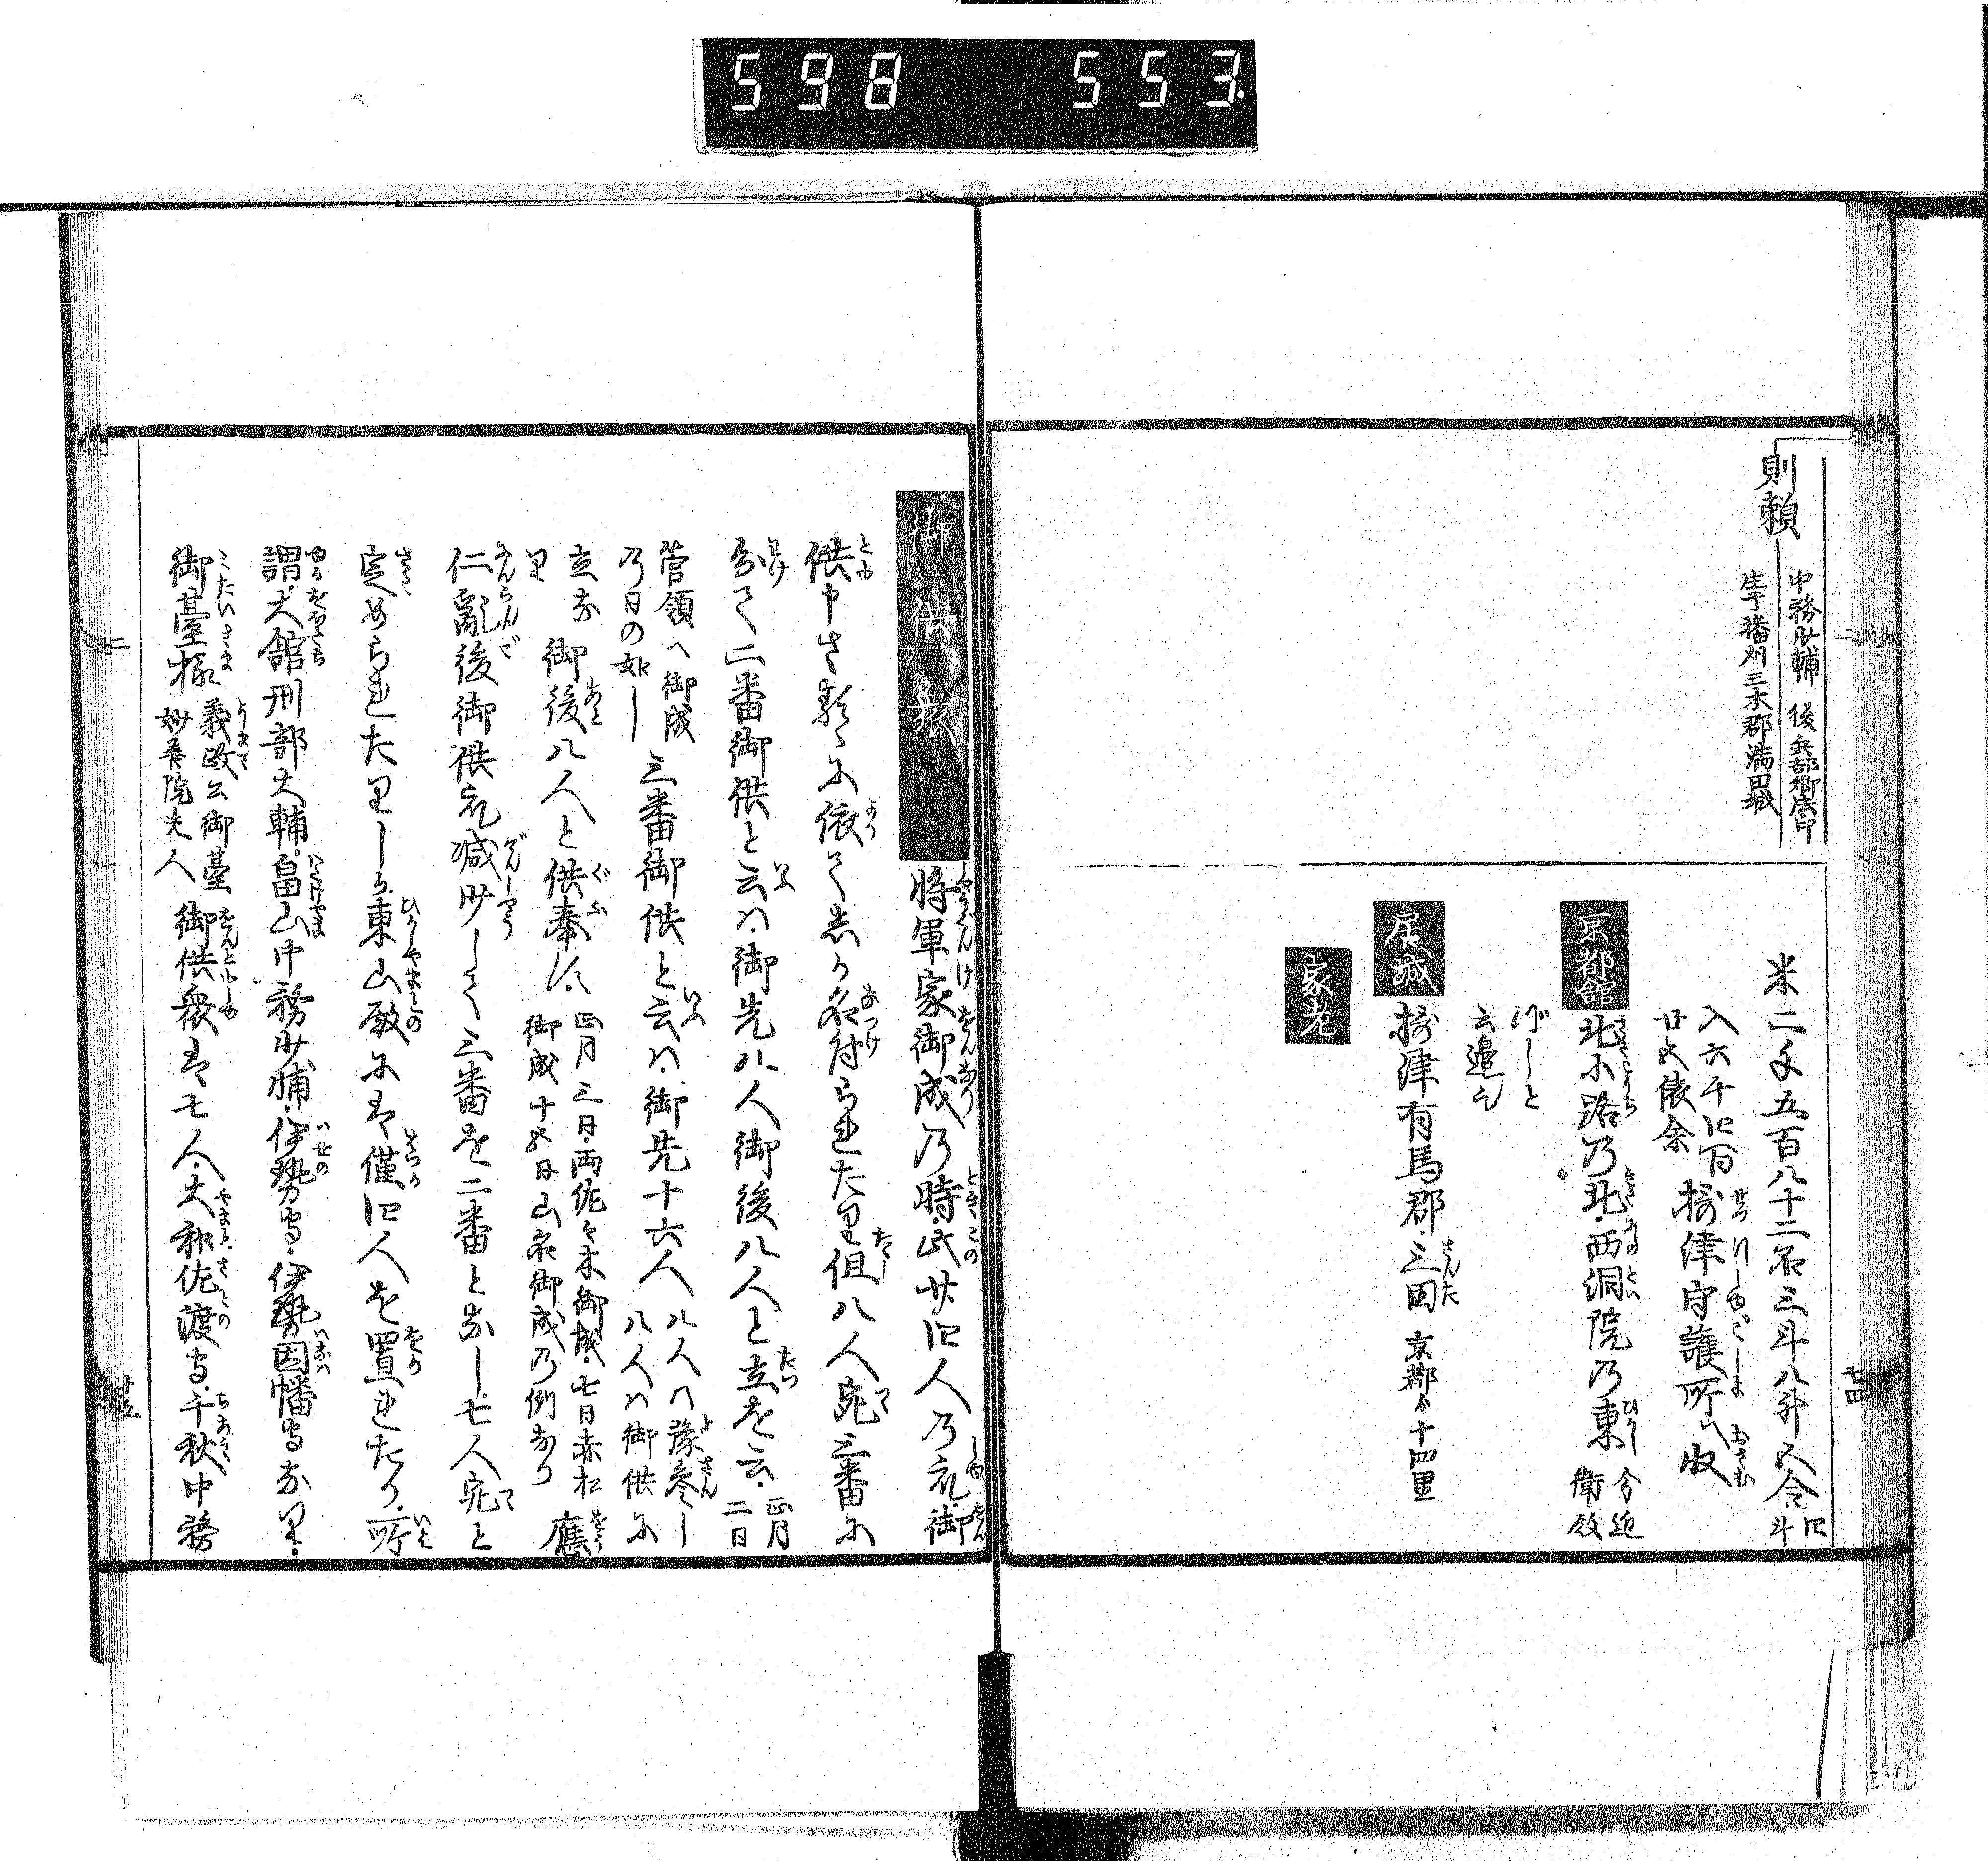 598 553.
則賴
中務少輔 後兵部卿法印
生于播刕三木郡満田城
米二千五百八十二石三斗八升
入六千四百
廿文俵余
摂津守護所へ収
京都舘
北小路乃北西洞院乃東
今近
衛殿
づしと
云邉也
居城
摂津有馬郡三田 京都ゟ十四里
家老
御供衆
将軍家御成乃時此廿四人乃衆御
供申さ
依て
名付られたり但八人宛三番に
分て二番御供と云ハ御先八人御後八人と立を云
正月
二日
管領へ御成
乃日の如し
三番御供と云ハ御先十六人
八人ハ豫参し
八人ハ御供に
立なり
御後八人と供奉ス
正月三日両佐々木御成七日赤松
御成十九日山名御成乃例なり
應
仁亂後御供衆減少して三番を二番となし七人宛と
定められたりしゟ東山殿にハ僅四人を置れたり所
謂大舘刑部大輔畠山中務少輔伊勢守伊勢因幡守なり
御臺様
義政公御臺
妙善院夫人
御供衆は七人大和佐渡守千秋中務